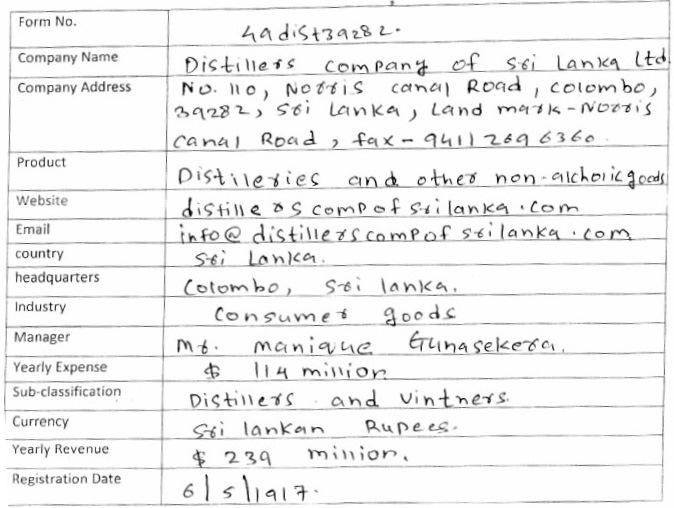 Form No. 49dist39282.
Company Name Distillers company of Sri Lanka Ltd.
Company Address No. 110, Norris canal Road, colombo,
39282, Sri Lanka, Land mark-Norris
canal Road, fax - 9411 2696360.
Product Distileries and other non-alcholic goods
Website distillerscompofsrilanka.com
Email info@distillerscompofsrilanka.com
country Sri Lanka.
headquarters Colombo, Sri lanka.
Industry Consumer goods
Manager Mr. manique Gunasekera.
Yearly Expense $ 114 million
Sub-classification Distillers and vintners.
Currency Sri lankan Rupees.
Yearly Revenue $ 239 million.
Registration Date 6/5/1917.